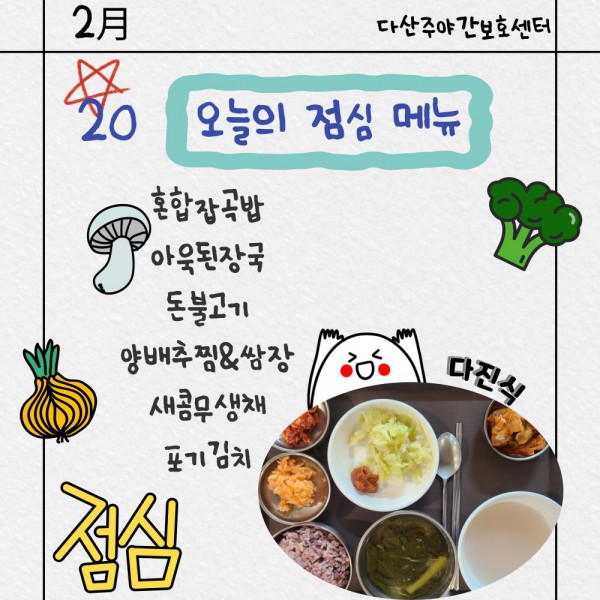 2月
다산주야간보호센터
20
오늘의 점심 메뉴
혼합잡곡밥
아욱된장국
돈불고기
양배추찜&쌈장
새콤무생채
포기김치
다진식
점심